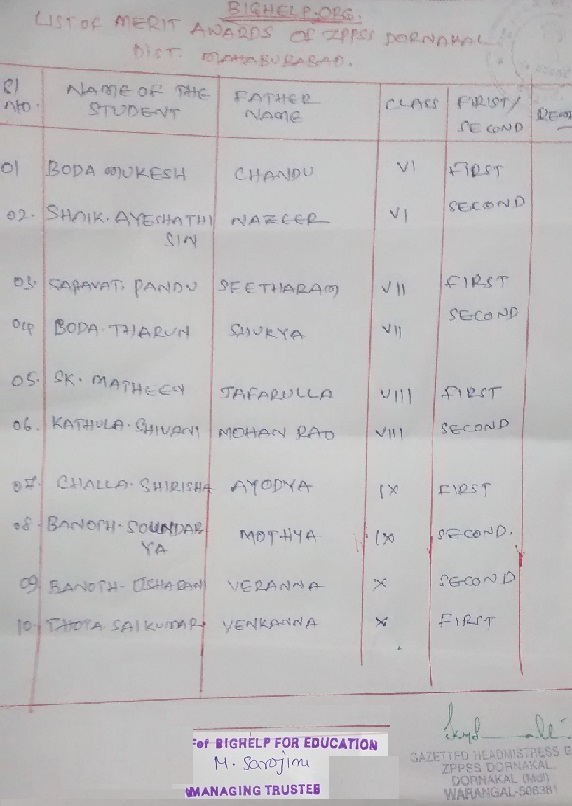 BIGHELP.ORG.
LIST OF MERIT AWARDS OF ZPPSS DORNAKAL
DIST. MAHABUBABAD.
Sl No. NAME OF THE STUDENT FATHER NAME CLASS FIRST/ SECOND REM
01 BODA MUKESH CHANDU VI FIRST
02. SHAIK. AYESHATHI SIN NAZEER VI SECOND
03. SAPAVATI PANDU SEETHARAM VII FIRST
04 BODA. THARUN SUKYA VII SECOND
05. SK. MATHEEN JAFARULLA VIII FIRST
06. KATHULA. SHIVANI MOHAN RAO VIII SECOND
07. CHALLA. SHIRISHA AYODYA IX FIRST
08. BANOTH. SOUNDAR YA MOTHYA IX SECOND.
09 BANOTH. USHARANI VERANNA X SECOND
10 THOTA SAIKUMAR VENKANNA X FIRST
For BIGHELP FOR EDUCATION
M. Sarojini
MANAGING TRUSTEE
GAZETTED HEADMISTRESS G
ZPPSS DORNAKAL
DORNAKAL (Mdl)
WARANGAL-506381